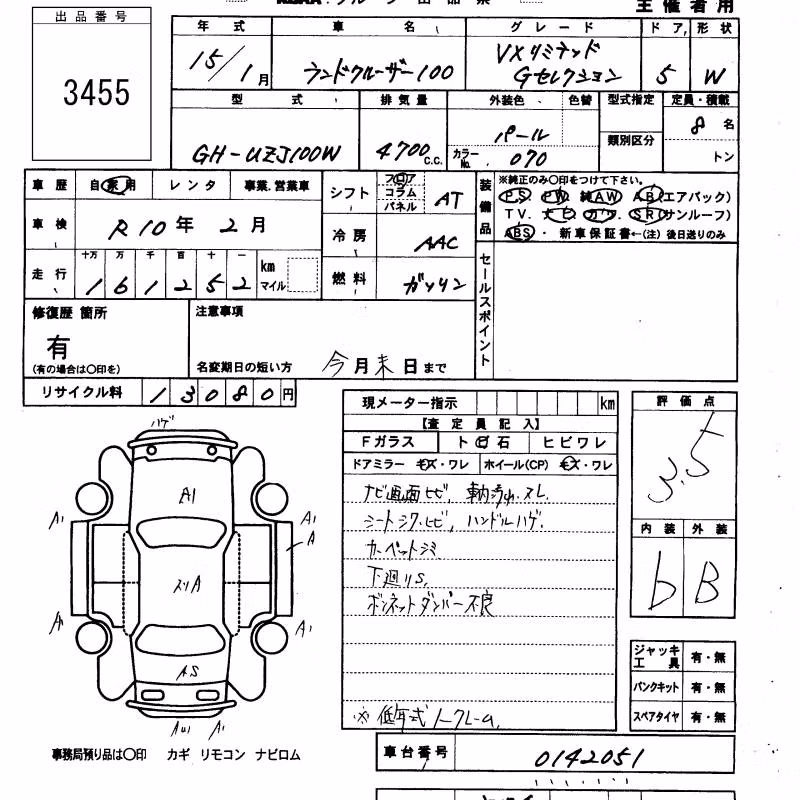 主催者用
出品番号
3455
年式 車名 グレード ドア 形状
15/1月 ランドクルーザー100 VXリミテッド Gセレクション 5 W
型式 排気量 外装色 色替 型式指定 類別区分 定員・積載
GH-UZJ100W 4700 C.C. パール カラーNo. 070 8名 トン
車歴 自家用 レンタ 事業.営業車
車検 R10年2月
走行 十万 万 千 百 十 一
161252 km マイル
シフト フロア コラム パネル AT
冷房 AAC
燃料 ガソリン
装備品
※純正のみ〇印をつけて下さい。
PS. PW. 純AW AB(エアバック)
TV. ナビ. カワ. SR(サンルーフ)
ABS・ 新車保証書←(注) 後日送りのみ
セールスポイント
修復歴 箇所
有
(有の場合は〇印を)
注意事項
名変期日の短い方 今月末日まで
リサイクル料 13080円
現メーター指示 km
【査定員記入】
Fガラス トビ石 ヒビワレ
ドアミラー キズ・ワレ ホイール(CP) キズ・ワレ
ナビ画面ヒビ, 車内汚れ スレ
シートシワ.ヒビ, ハンドルハゲ.
カーペットシミ
下廻りS.
ボンネットダンパー不良
評価点
3.5
内装 外装
b B
ハゲ
A1
A1 A1
A
A
A1 A1
AS
A1
ジャッキ 工具 有・無
パンクキット 有・無
スペアタイヤ 有・無
事務局預り品は〇印 カギ リモコン ナビロム
車台番号 0142051